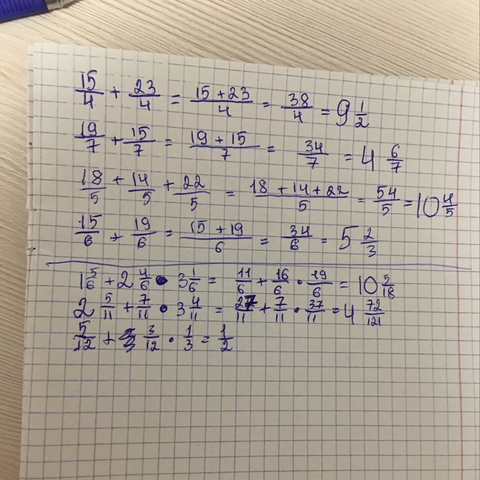 15/4 + 23/4 = (15+23)/4 = 38/4 = 9 1/2
19/7 + 15/7 = (19+15)/7 = 34/7 = 4 6/7
18/5 + 14/5 + 22/5 = (18+14+22)/5 = 54/5 = 10 4/5
15/6 + 19/6 = (15+19)/6 = 34/6 = 5 2/3
1 5/6 + 2 4/6 • 3 1/6 = 11/6 + 16/6 · 19/6 = 10 5/18
2 5/11 + 7/11 · 3 4/11 = 27/11 + 7/11 · 37/11 = 4 72/121
5/12 + 3/12 · 1/3 = 1/2